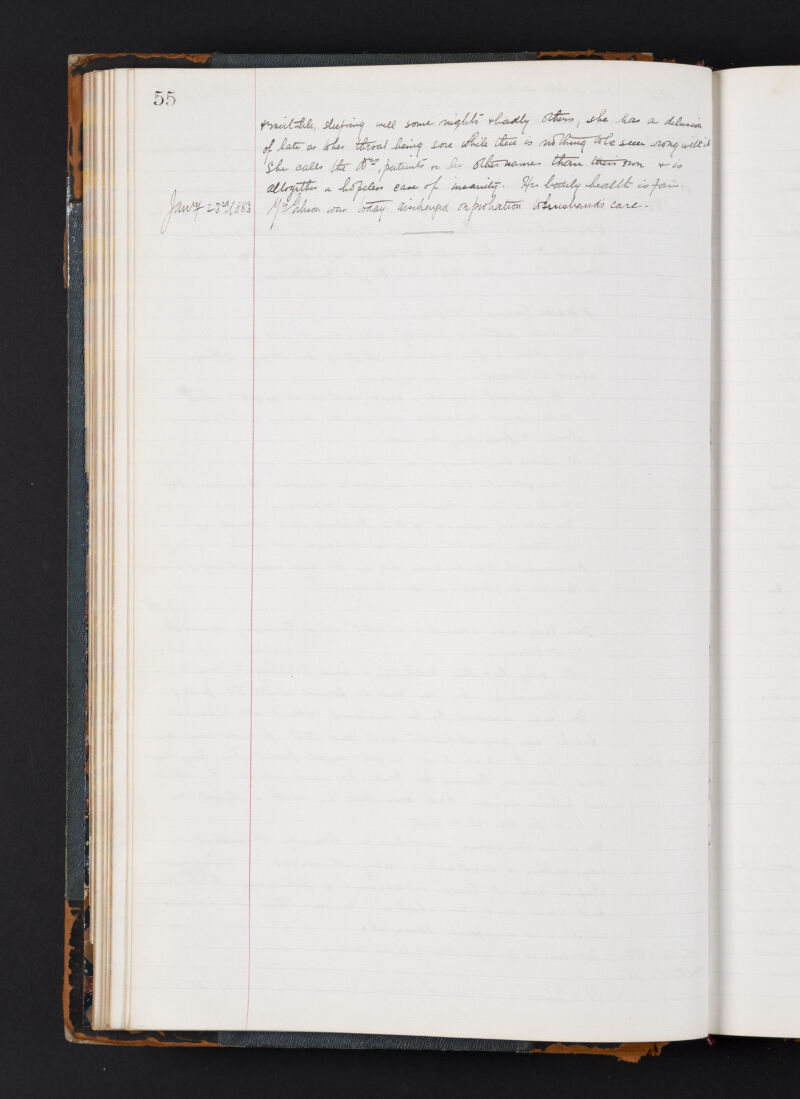 55
& irritable, sleeping well some nights & badly others, she has a delusion
of late as to her throat being sore while there is nothing to be seen wrong with it
She calls the Drs, patients &c by other names than their own & is
altogether a hopeless case of insanity. Her bodily health is fair.
Jany 23rd/1883 Mrs was today discharged on probation to husband's care.